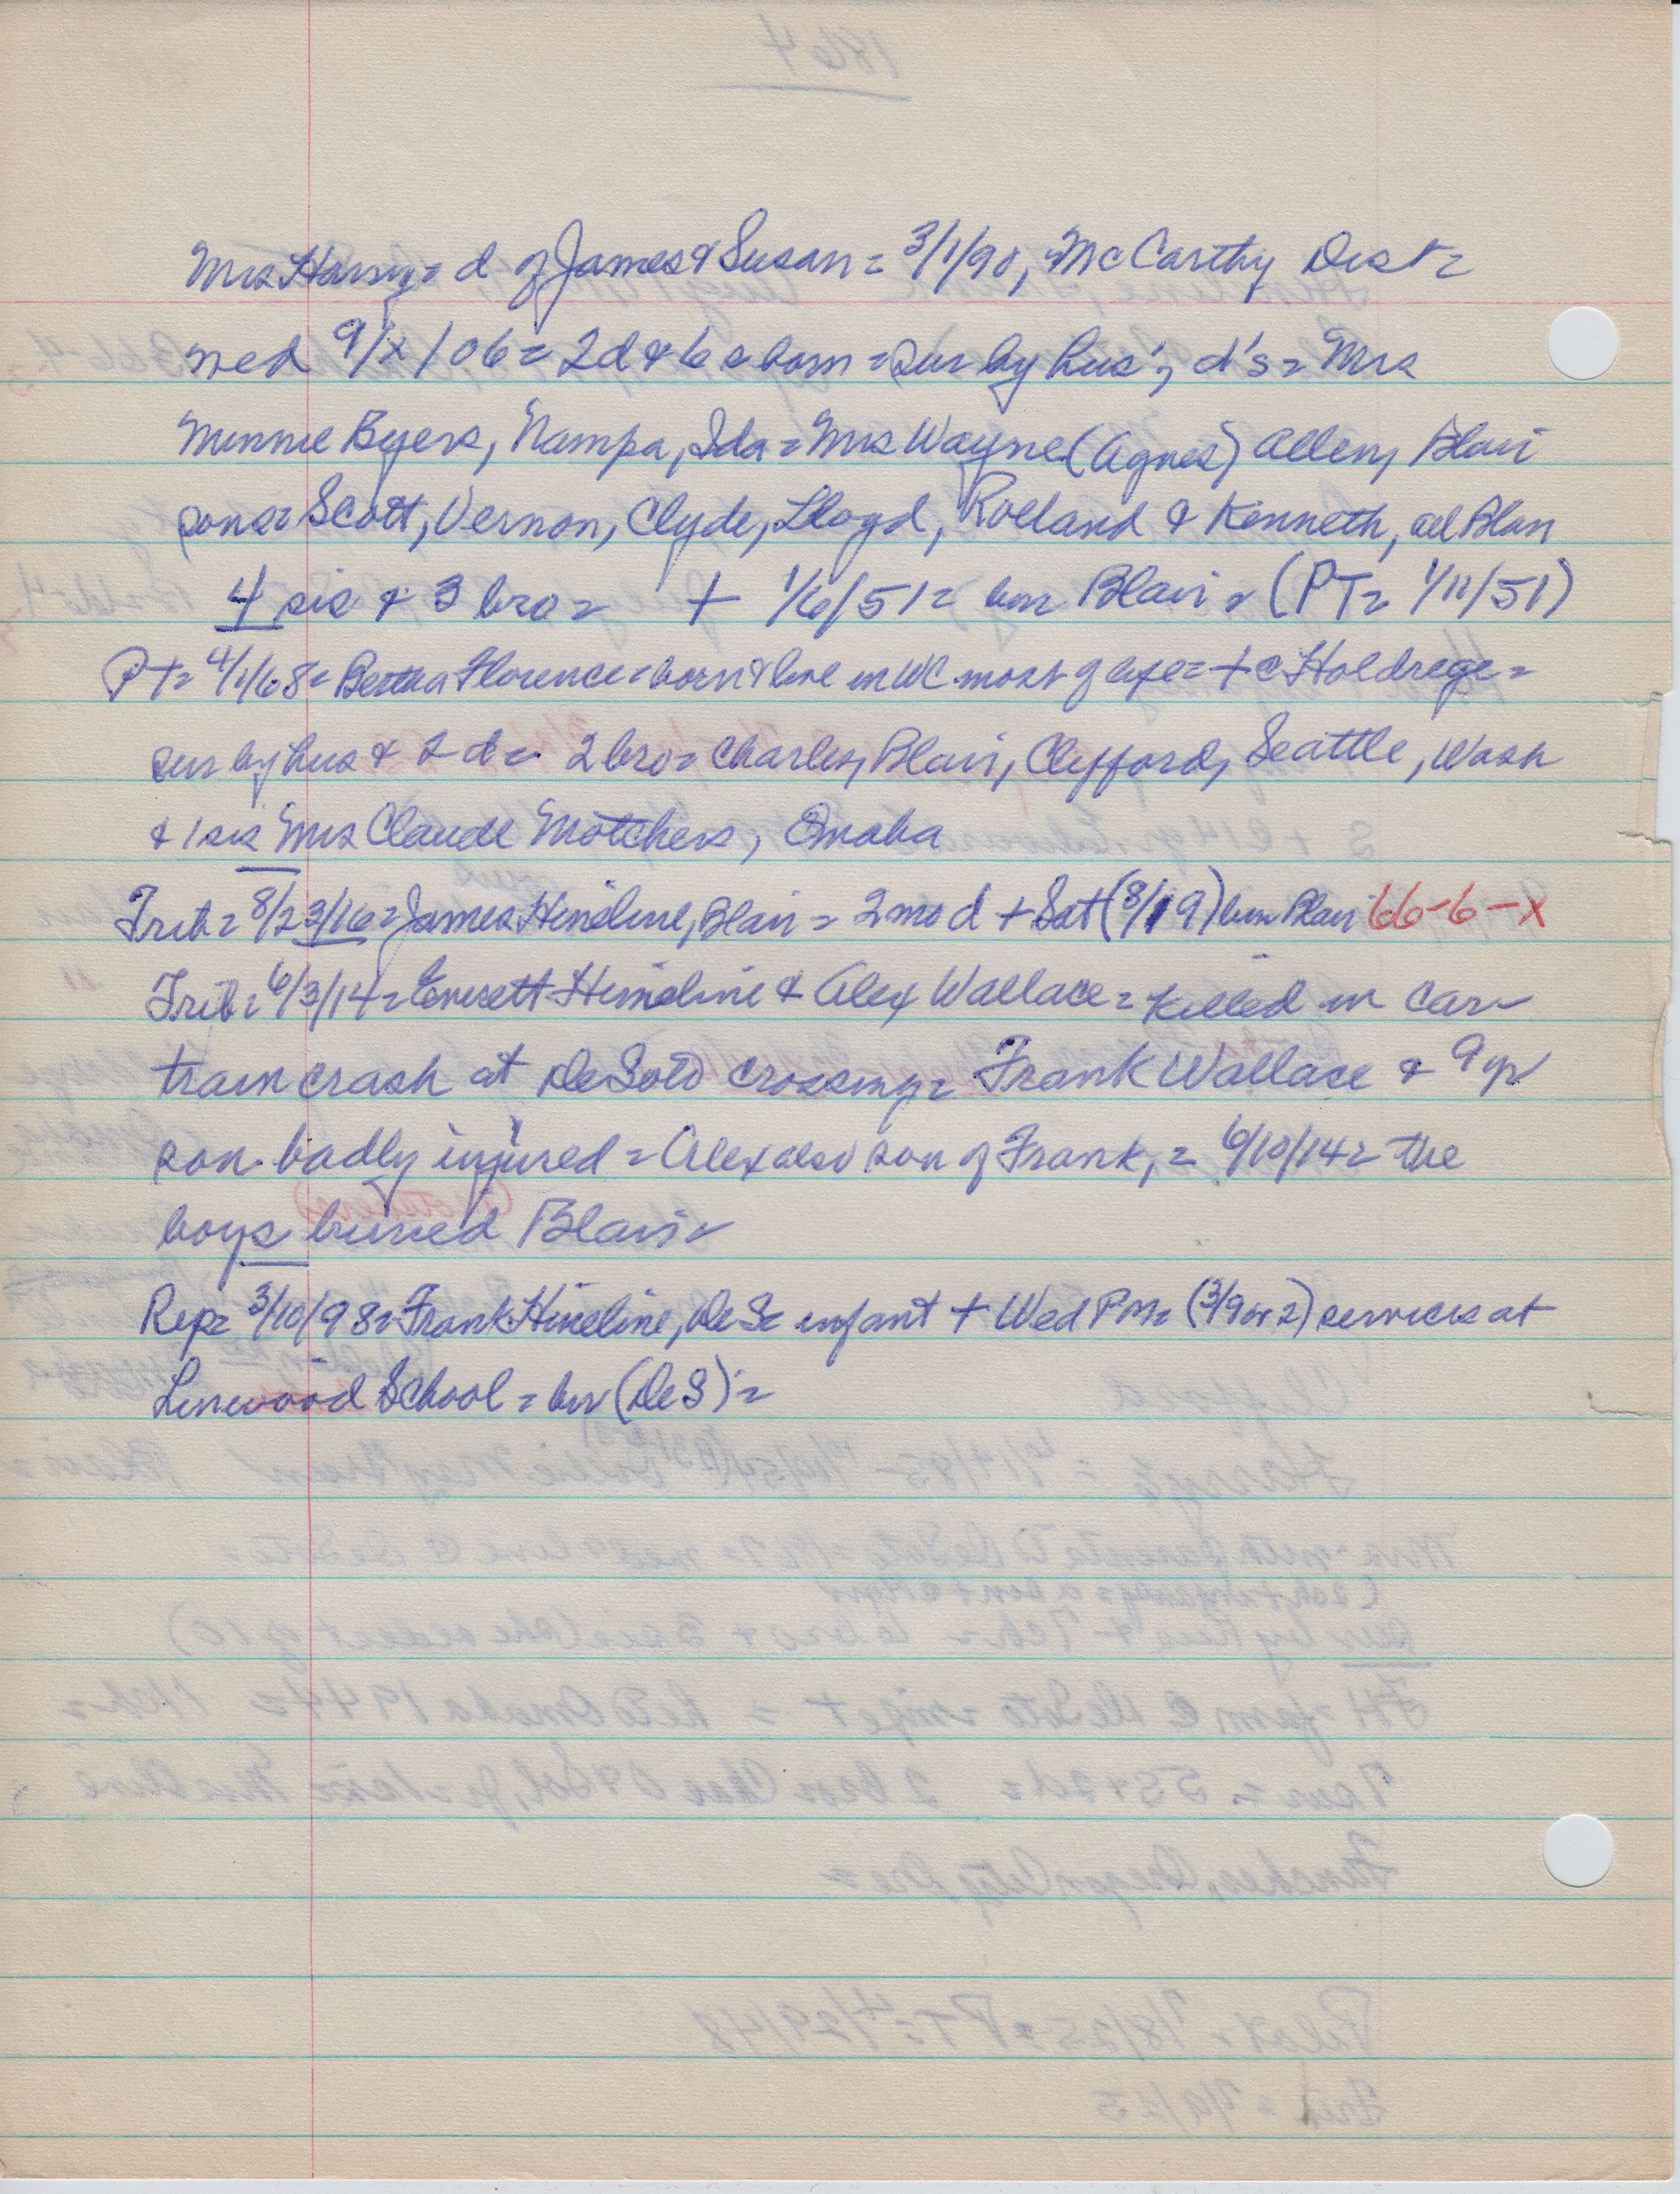 Mrs Harry = d of James & Susan = 3/1/90, McCarthy Dist =
med 9/x/06 = 2d & 6 s born = sur by hus', d's = Mrs
Minnie Byers, Nampa, Ida = Mrs Wayne (Agnes) Allen, Blair
sons = Scott, Vernon, Clyde, Lloyd, Rolland & Kenneth, all Blair
4 sis & 3 bro = + 1/6/51 = bur Blair = (PT = 1/11/51)
PT = 4/1/68 = Bertha Florence = born & live in WC most of life = + c Holdrege =
sur by hus & 2 d = 2 bro = Charles, Blair, Clifford, Seattle, Wash
& 1 sis Mrs Claude Motchers, Omaha
Trib = 8/23/16 = James Hineline, Blair = 2 mo d + Sat (8/19) bur Blair 66-6-x
Trib = 6/3/14 = Everett Hineline & Alex Wallace = killed in car
train crash at DeSoto crossing = Frank Wallace & 9 yr
son badly injured = Alex also son of Frank, = 6/10/14 = the
boys buried Blair =
Rep = 3/10/98 = Frank Hineline, DeS = infant + Wed PM = (3/9 or 2) services at
Linwood School = bur (DeS) =